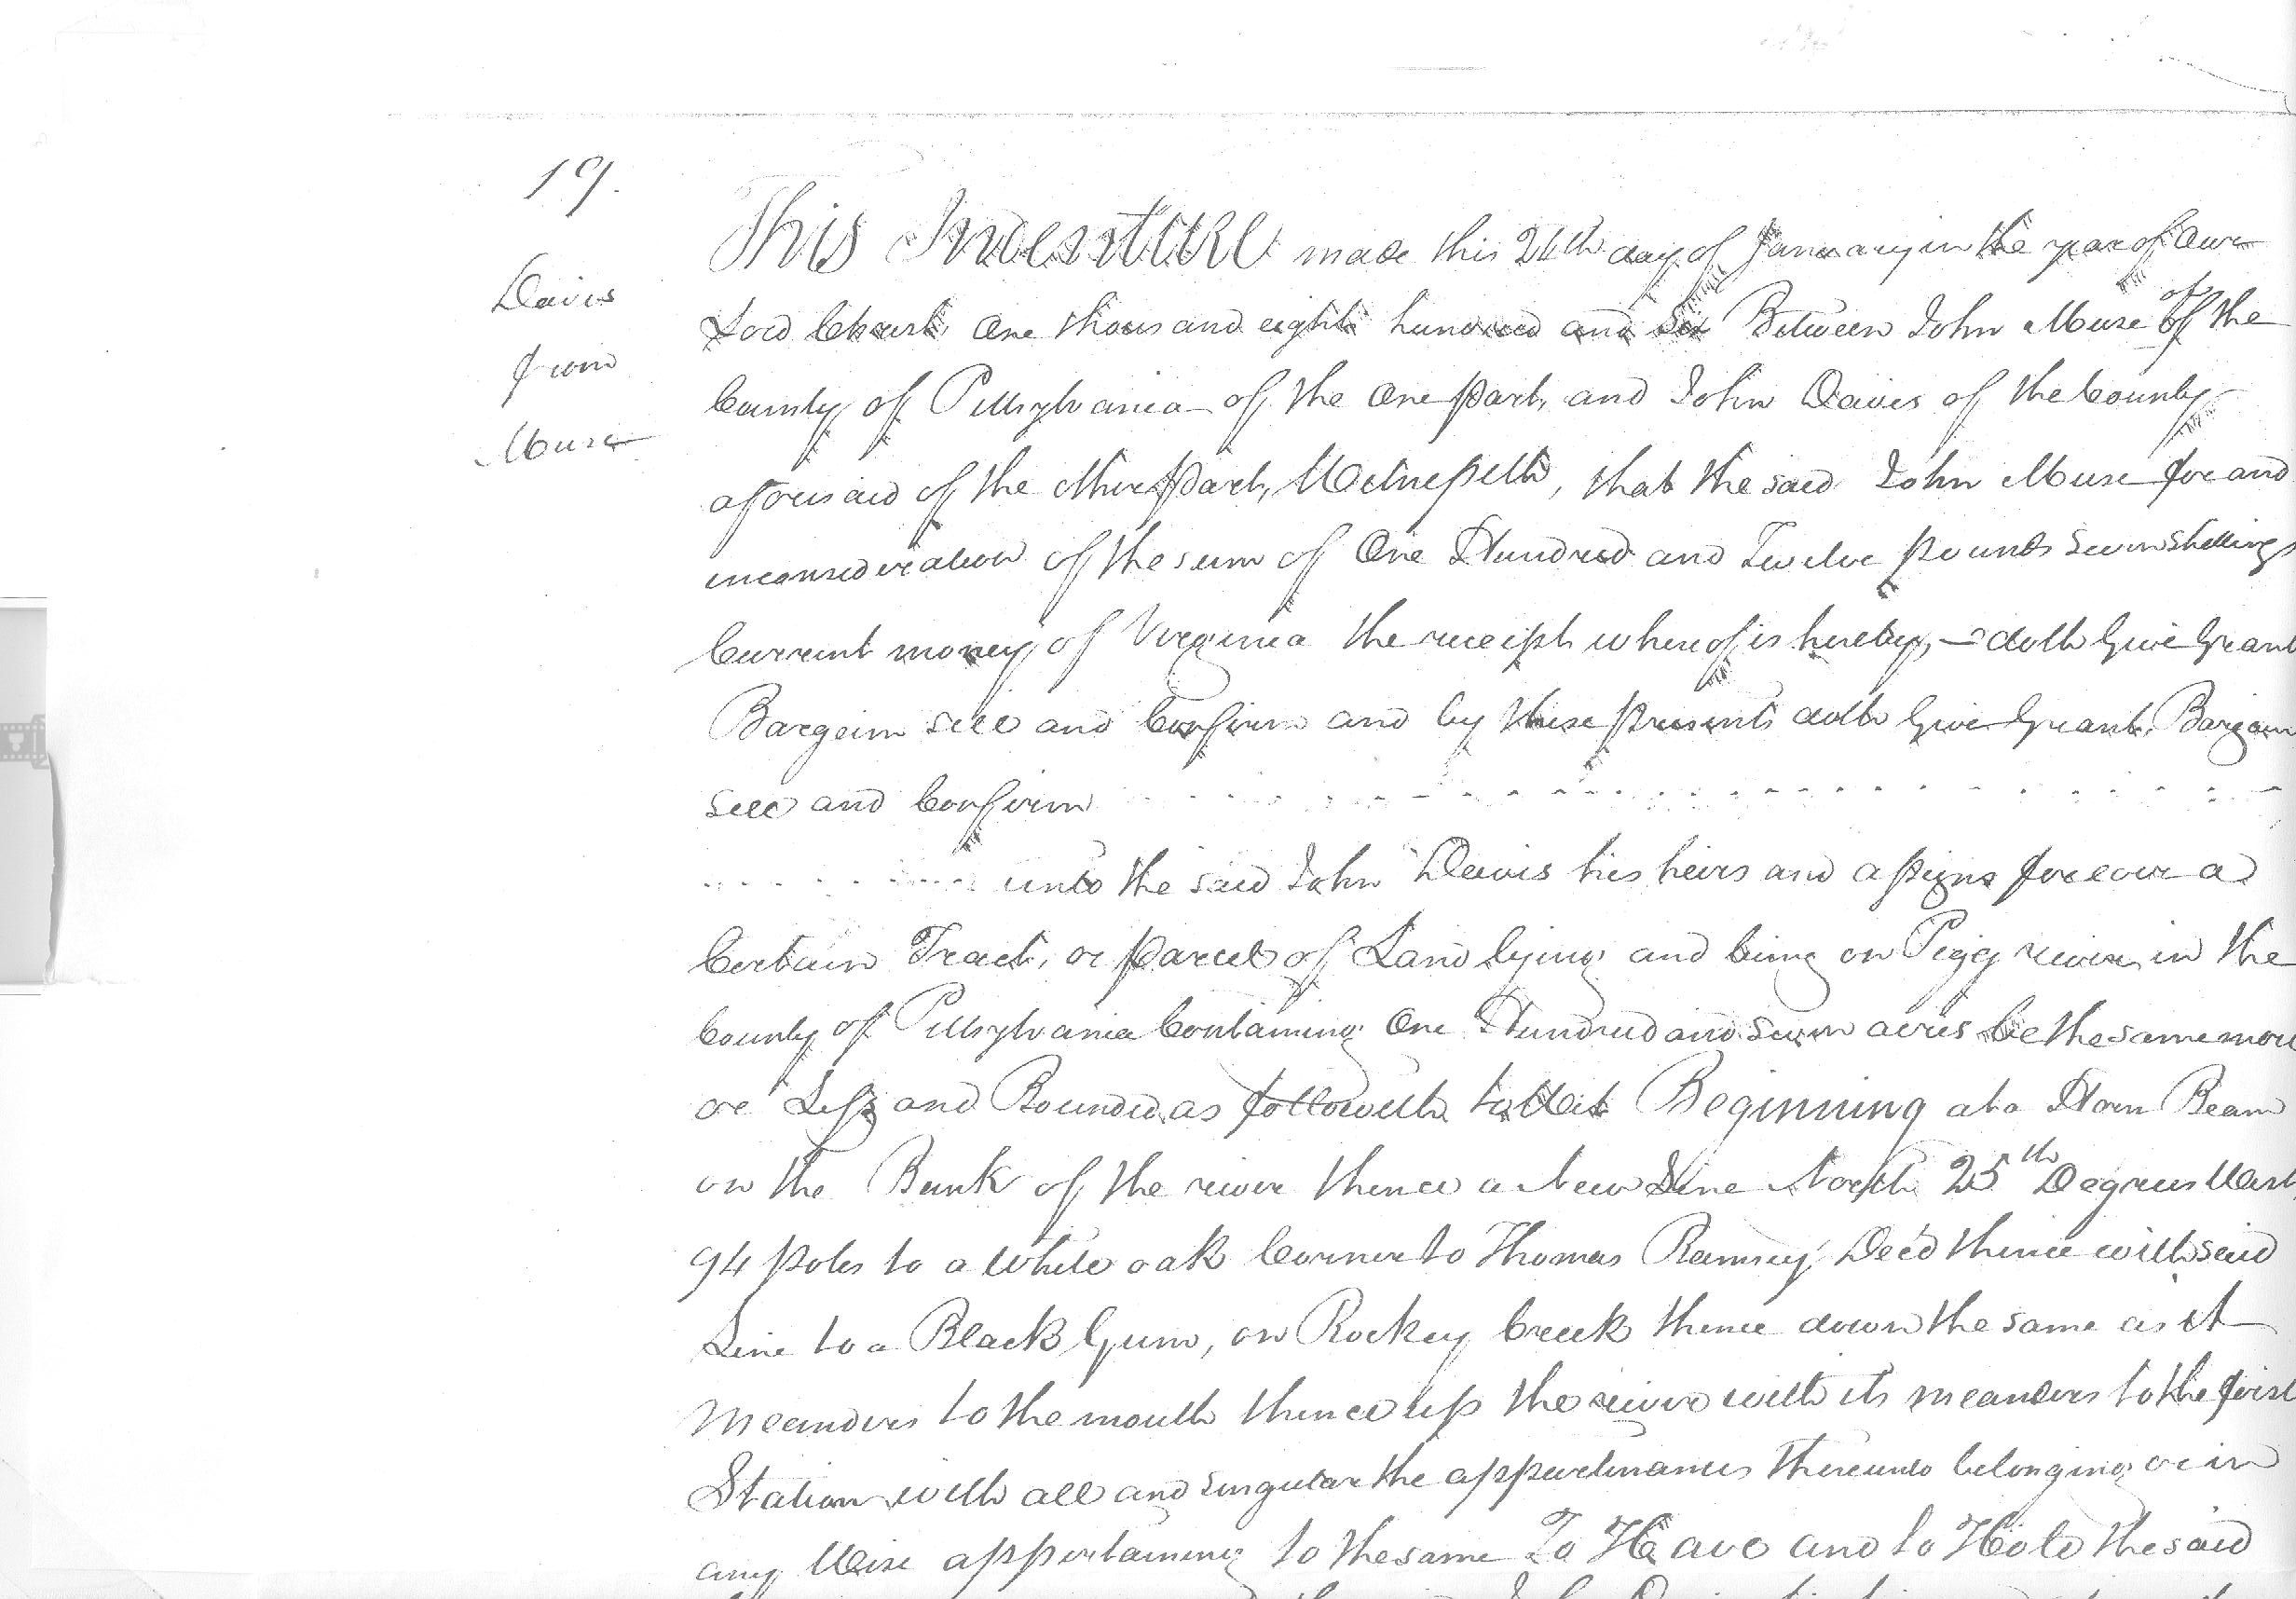 19.
Davis
from
Muse
This Indenture made this 24th day of January in the year of Our
Lord Christ, One thousand eight hundred and Six Between John Muse of of the
County of Pittsylvania of the One part, and John Davis of the County
aforesaid of the other part, Witnesseth, that the said John Muse for and
inconsideration of the sum of One Hundred and Twelve pounds seven shillings
Current money of Virginia the receipt whereof is hereby, - doth Give Grant
Bargain sell and Confirm and by these presents doth Give Grant, Bargain
sell and Confirm
unto the said John Davis his heirs and assigns forever a
Certain Tract, or parcel of Land lying and being on Pigg river in the
County of Pittsylvania Containing One Hundred and seven acres be the same more
or Less and Bounded as followeth to Wit Beginning at a Horn Beam
on the Bank of the river thence a New Line North 25th Degrees West
94 poles to a White oak Corner to Thomas Ramsey Dec'd thence with said
Line to a Black Gum, on Rockey Creek thence down the same as it
meanders to the mouth thence up the river with its meanders to the first
Station with all and singular the appurtinances thereunto belonging or in
any Wise appertaining to the same To Have and to Hold the said